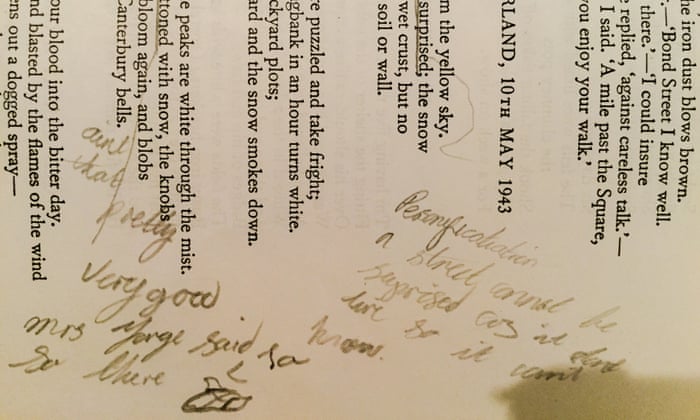 he iron dust blows brown.
.—'Bond Street I know well.
there.'—'I could insure
e replied, 'against careless talk.'—
I said. 'A mile past the Square,
you enjoy your walk.'
RLAND, 10TH MAY 1943
m the yellow sky.
surprised; the snow
wet crust, but no
soil or wall.
re puzzled and take fright;
gbank in an hour turns white.
ckyard plots;
ard and the snow smokes down.
e peaks are white through the mist.
ttoned with snow, the knobs
bloom again, and blobs
Canterbury bells.
our blood into the bitter day.
nd blasted by the flames of the wind
ens out a dogged spray—
Personification
a street cannot be
surprised cos it dont
live so it cant
know.
aint
that
pretty
very good
Mrs said
so there